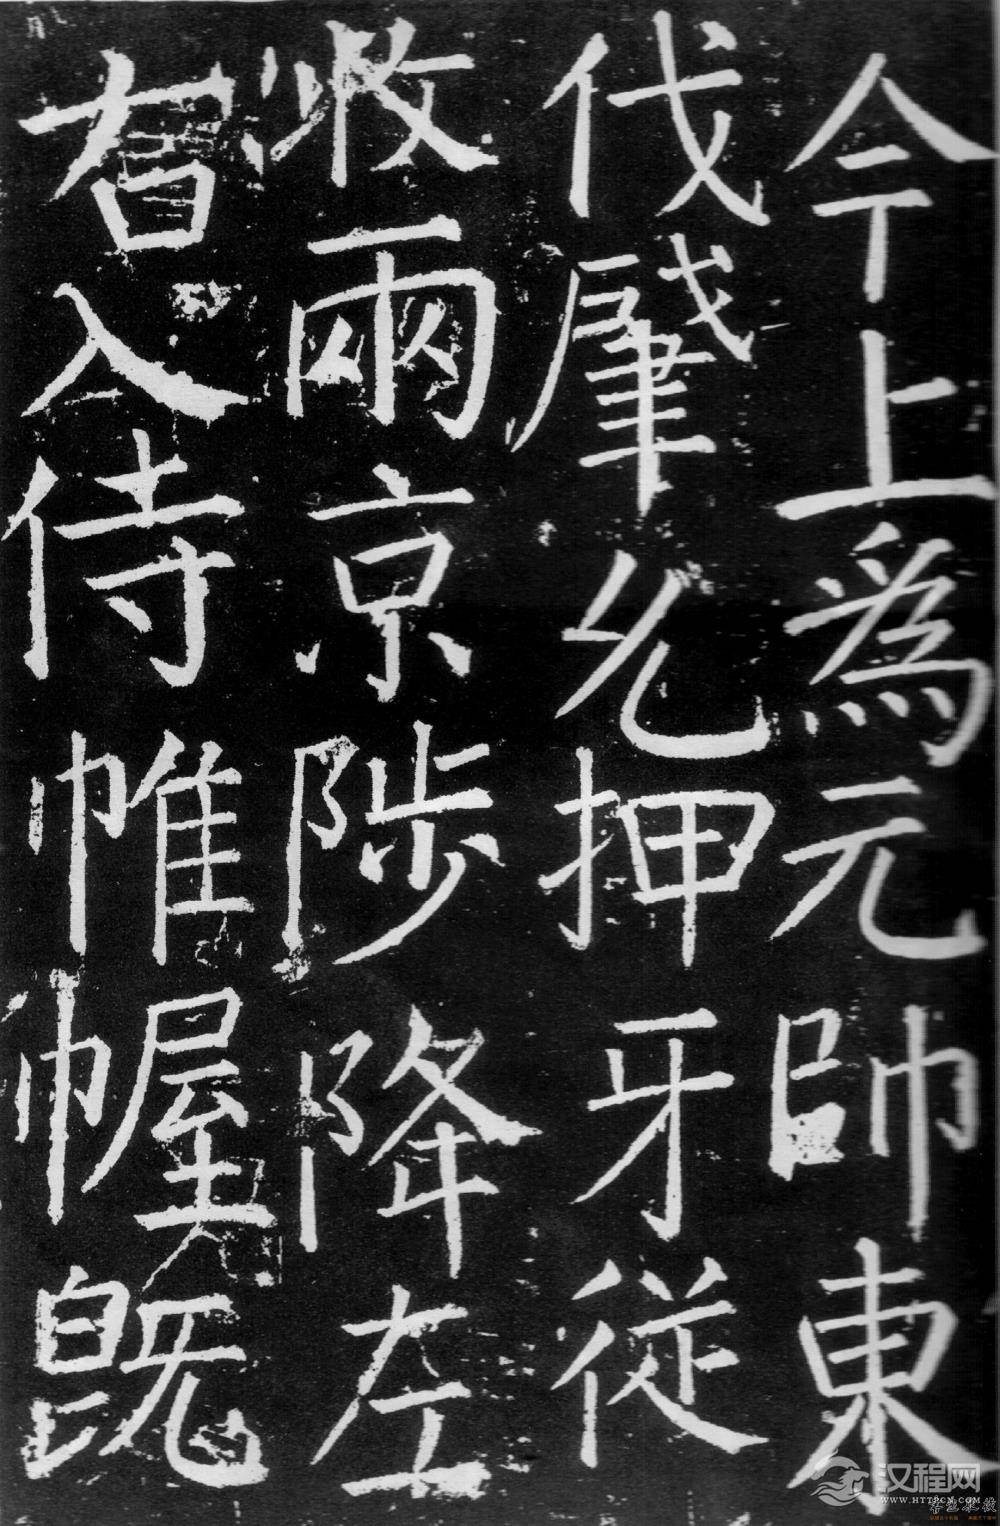 今上為元帥東
伐肇允押牙從
收兩京陟降左
右入侍帷幄既
汉程网
WWW.HTTPCN.COM